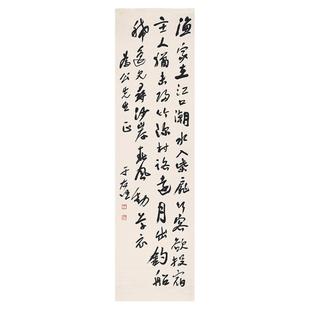 漁家在江口潮水入柴扉行客欲投宿
主人猶未歸竹深村路遠月出釣船
稀遙見尋沙岸春風動草衣
公先生正
于右任